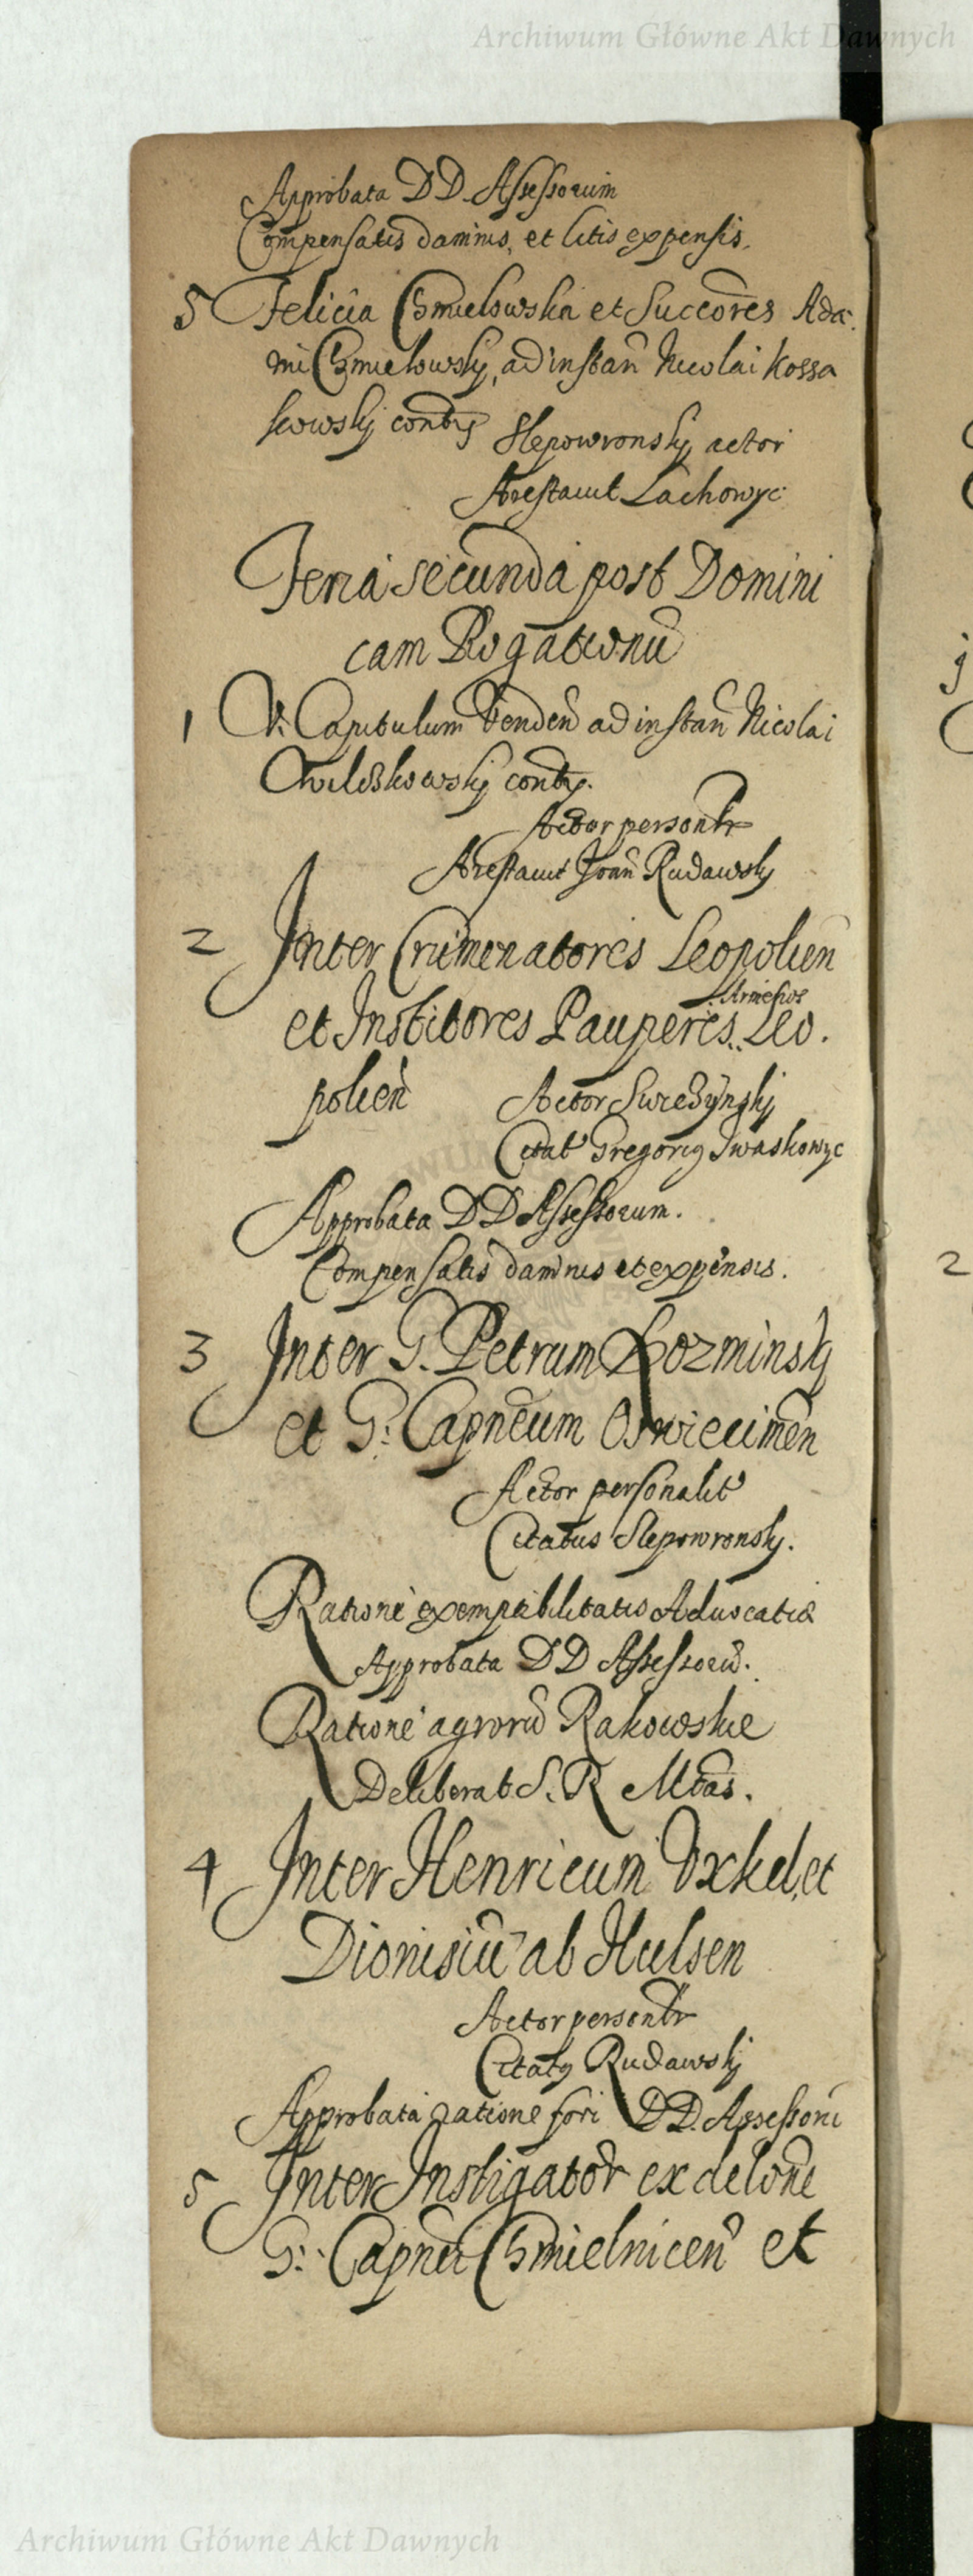 Archiwum Główne Akt Dawnych
Approbata DD. Assessorum
Compensatis damnis, et litis expensis.
5 Felicia Chmielowska et Succōres Ada
mi Chmielowskj, ad instan̄ Nicolai Kossa
kowskj
Slepowronskj actor
Arestavit Lachowyc
Feria secunda post Domini
cam Rogationū
1 V. Capitulum Venden̄ ad instan̄ Nicolai
Actor personlr
Arestavit Joan̄ Rudawskj
2 Inter Criminatores Leopolien̄
et Institores Pauperes Leo.
polien̄ Actor Swiezynskj
Citat Gregorig Iwaskowyc
Approbata DD Assessorum.
Compensatis damnis et expensis.
3 Inter G. Petrum Kozminskj
et G: Capnēum Oswiecimen̄
Actor personalit
Citatus Slepowronskj.
Ratione exemptibilitatis Advocatiæ
Approbata DD Assessorū.
Ratione agrorū Rakowskie
Deliberat S. R Mtās.
4 Inter Henricum Vxkel, et
Dionisiū ab Hulsen
Actor personlr
Citatg Rudawskj
Approbata ratione fori DD. Assessorū
5 Inter Instigator̄ ex delōne
G: Capnei Chmielnicen̄ et
2
Archiwum Główne Akt Dawnych